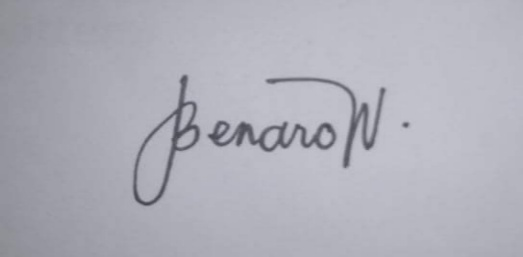 Benaro W.